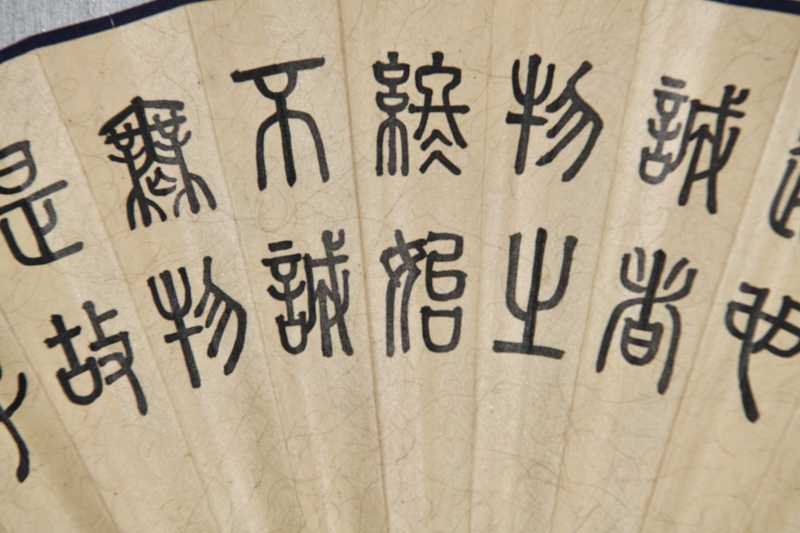 也
誠者
物之
終始
不誠
無物
是故